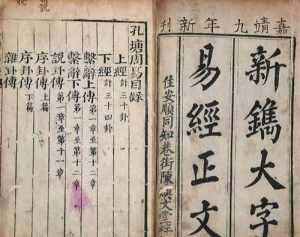 嘉慶九年新刊
新鐫大字
易經正文
孔塘周易目錄
上經計三十卦
下經計三十四卦
繫辭上傳第一章至第十二章
繫辭下傳第一章至第十二章
說卦傳第一章至第十一章
序卦傳上篇
序卦傳下篇
雜卦傳